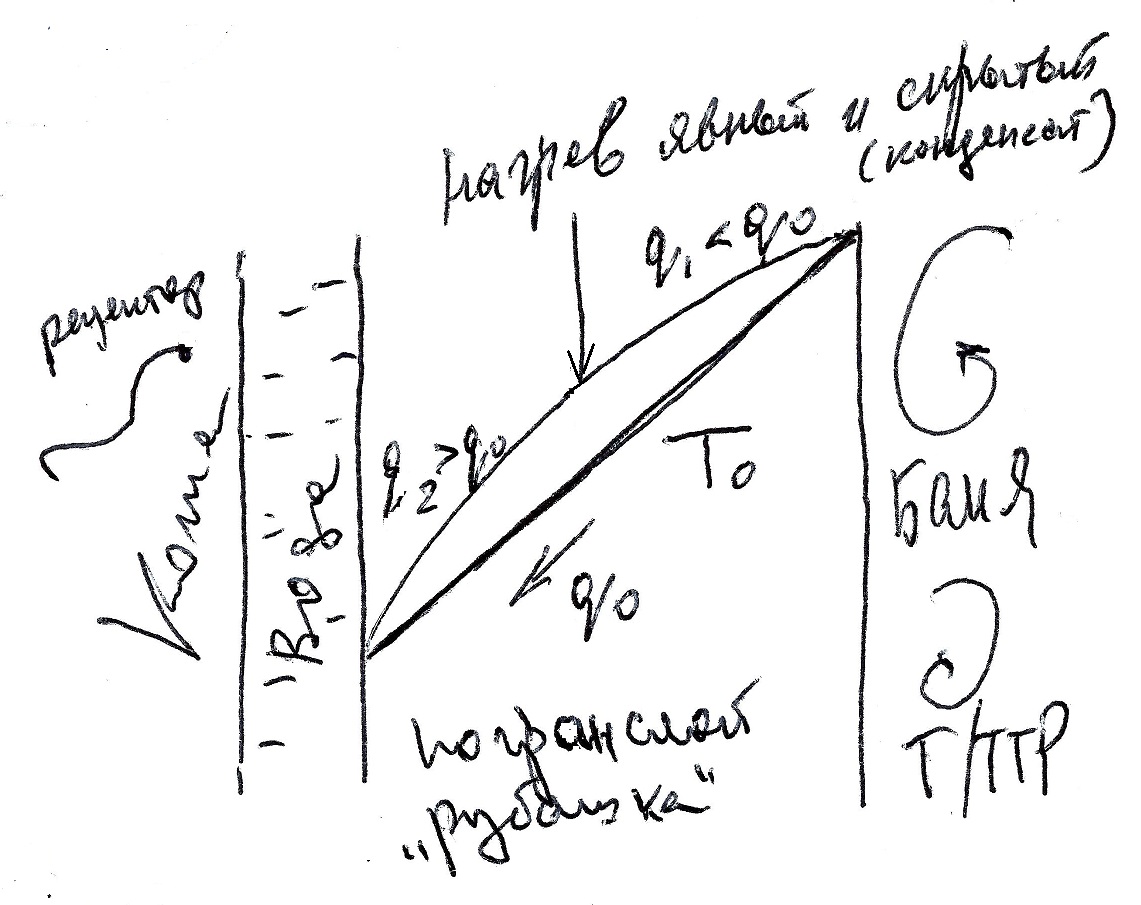 нагрев явный и скрытый
(конденсат)
q₁ < q₀
рецептор
Кожа
Вода
q₂ > q₀
T₀
q₀
Баня
погранслой
„рубашка“
Т/ПТР